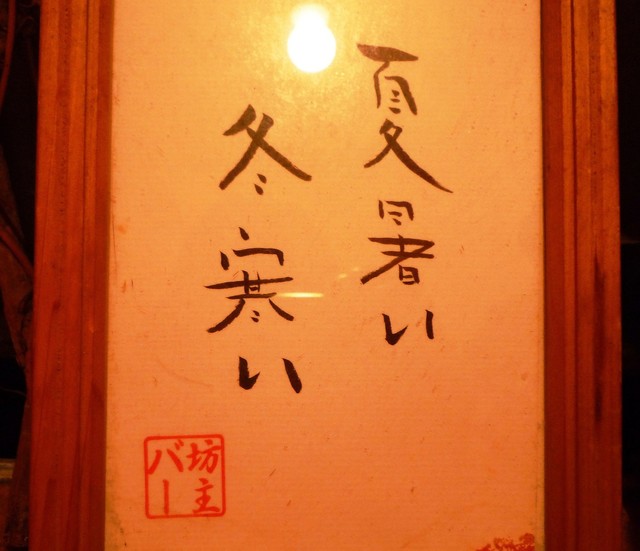 夏暑い
冬寒い
坊主
バー